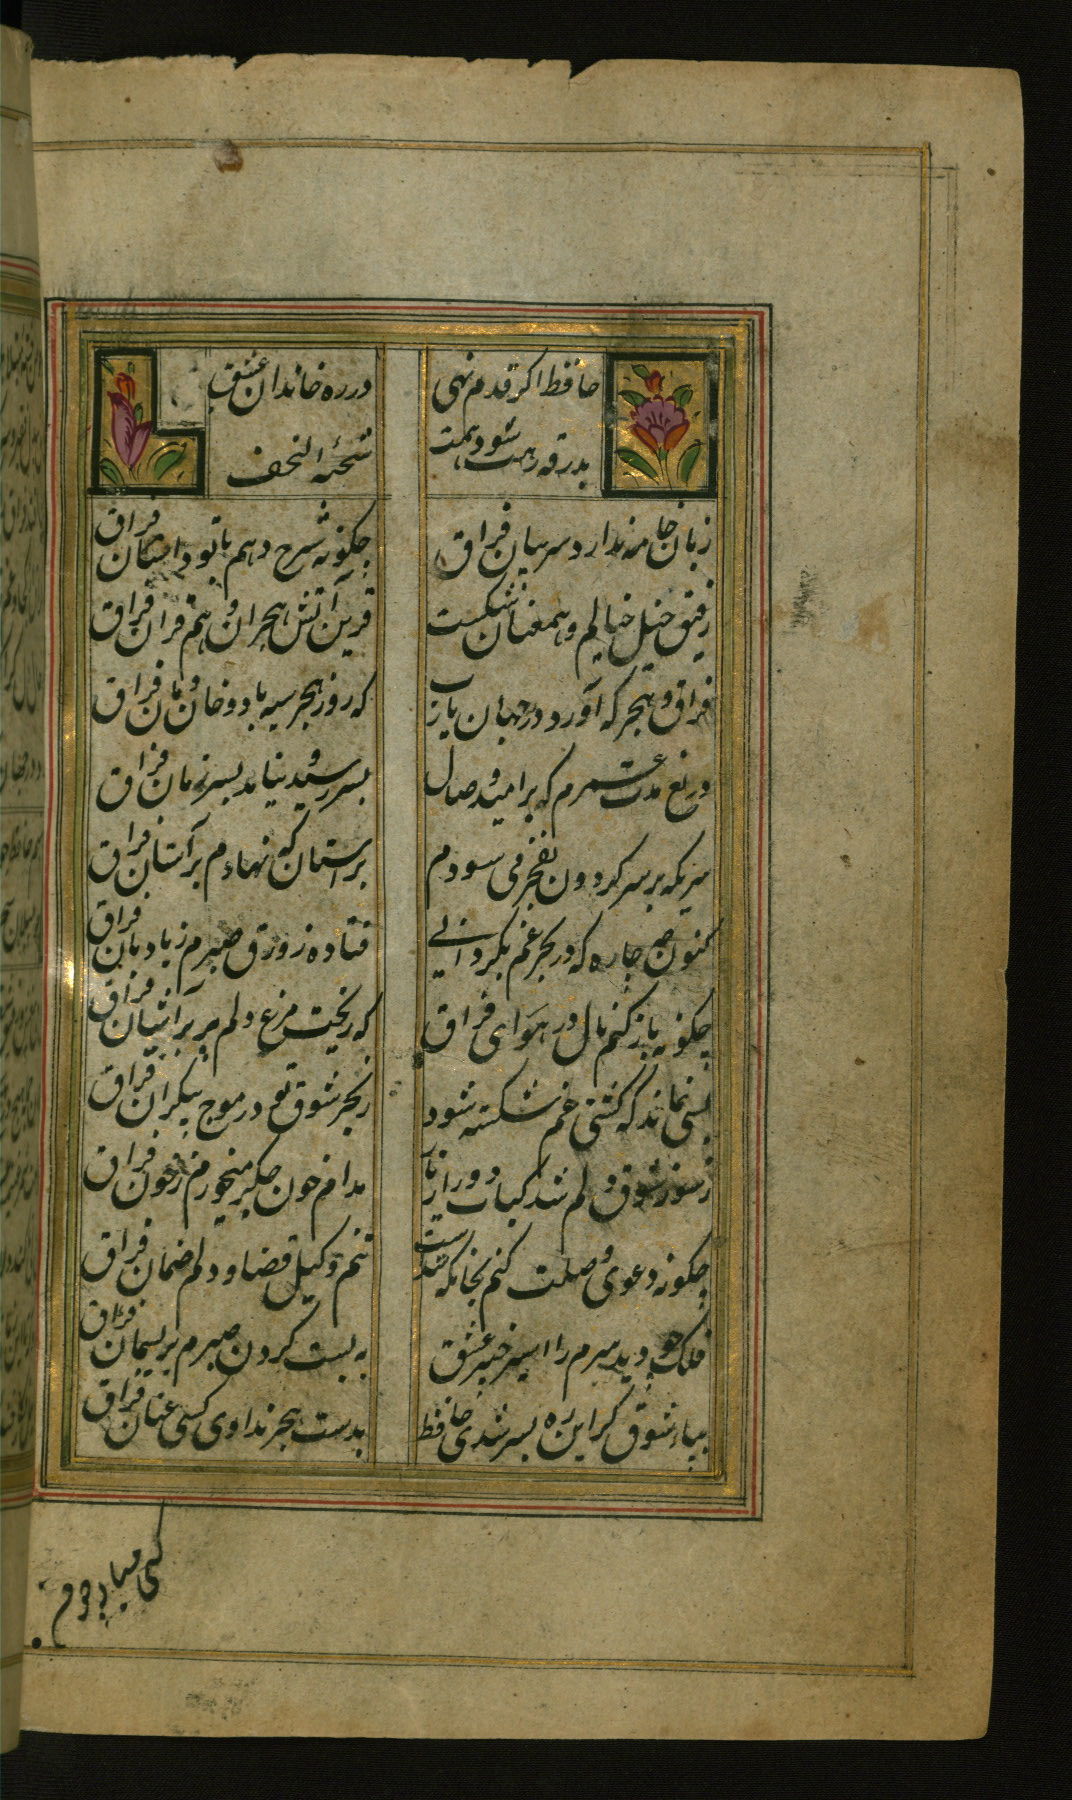 حافظ اکر قدم نهی
در ره خاندان عشق
بدرقه رهت شود همت
شحنه النجف
زبان خامه ندارد سر بیان فراق
چکونه شرح دهم با تو داستان فراق
رفیق خیل خیالم و همعنان شکیب
قرین آتش هجران و هم قران فراق
فراق و هجر که آورد در جهان یارب
که روز هجر سیه باد و خان و مان فراق
دریغ مدت عمرم که بر امید وصال
بسر رسید و نیامد بسر زمان فراق
سریکه بر سر کردون بفخر می سودم
براستان که نهادم بر آستان فراق
کنون چه چاره که در بحر غم بکردابی
فتاده زورق صبرم ز بادبان فراق
چکونه باز کنم بال در هوای فراق
که ریخت مرغ دلم پر بر آشیان فراق
بسی نماند که کشتی غم شکسته شود
ز بحر شوق تو در موج بیکران فراق
ز سوز شوق دلم شد کباب و دور از یار
مدام خون جکر میخورم ز خون فراق
چکونه دعوی وصلت کنم بجانکه شدست
تنم وکیل قضا و دلم ضمان فراق
فلک چو دید سرم را اسیر خنبر عشق
به بست کردن صبرم بریسمان فراق
بپاء شوق کر این ره بسر شدی حافظ
بدست هجر ندادی کسی عنان فراق
کسی میاد چو من